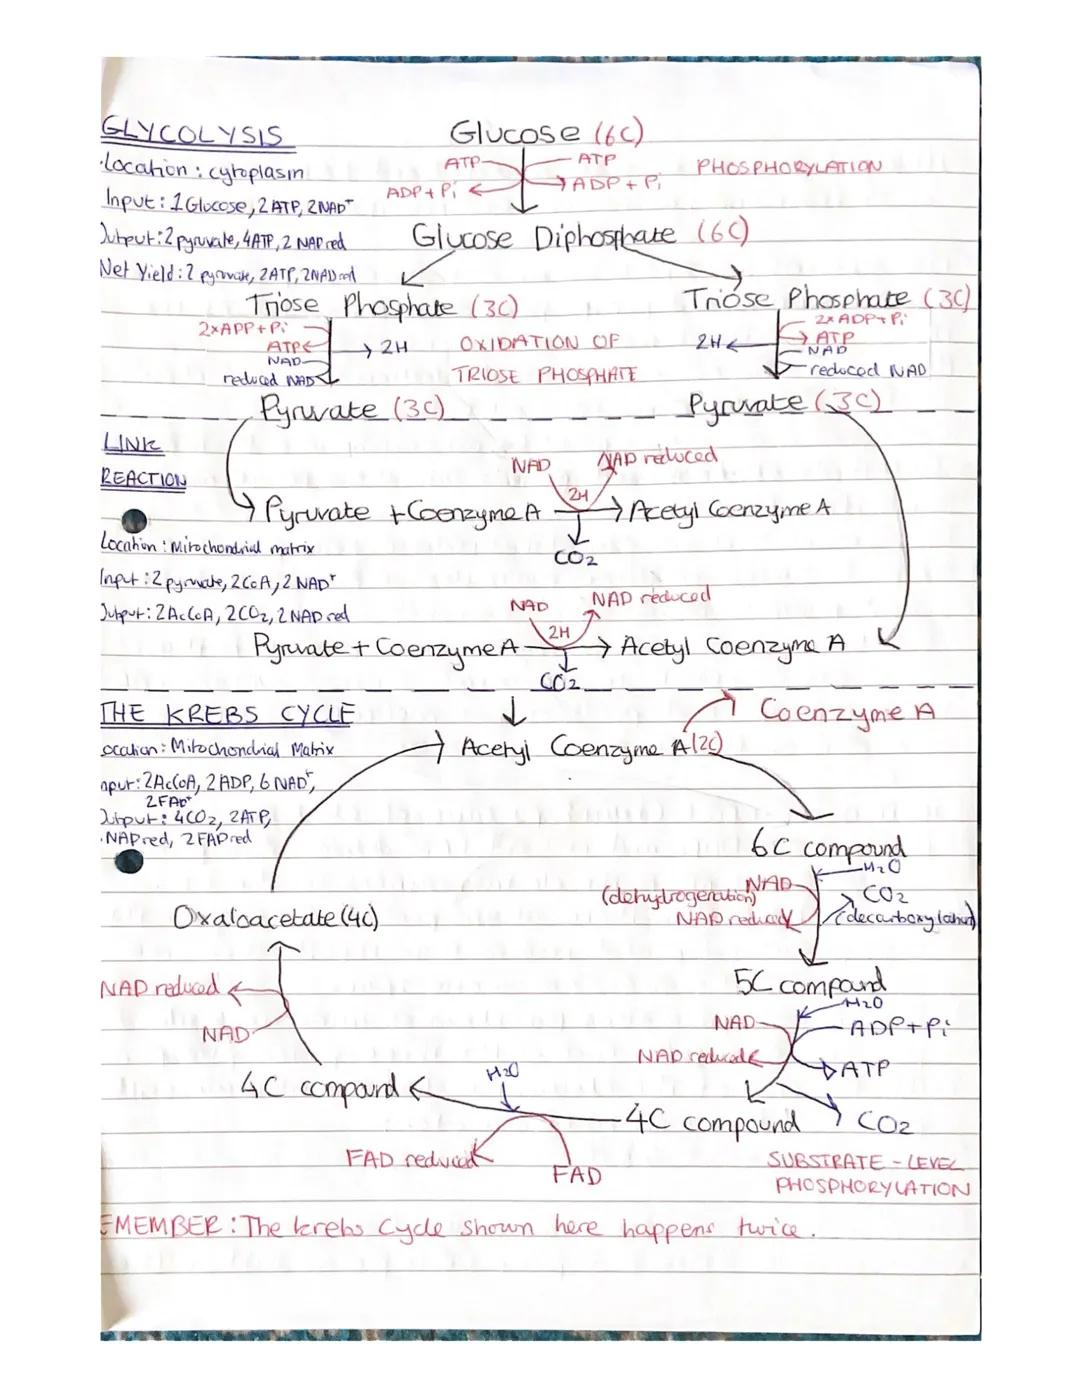 GLYCOLYSIS
Glucose (6C)
·Location : cytoplasm
ATP
ATP
PHOSPHORYLATION
ADP + Pi
ADP + Pi
Input : 1 Glucose, 2 ATP, 2 NAD+
Output : 2 pyruvate, 4ATP, 2 NAD red
Glucose Diphosphate (6C)
Net Yield : 2 pyruvate, 2ATP, 2NAD red
Triose Phosphate (3C)
Triose Phosphate (3C)
2xADP+Pi
ATP
NAD
reduced NAD
2H
OXIDATION OF
TRIOSE PHOSPHATE
2H
2xADP+Pi
ATP
NAD
reduced NAD
Pyruvate (3C)
Pyruvate (3C)
LINK
REACTION
NAD
NAD reduced
2H
Pyruvate + Coenzyme A
Acetyl Coenzyme A
CO2
Location : Mitochondrial matrix
Input : 2 pyruvate, 2CoA, 2 NAD+
Output : 2AcCoA, 2CO2, 2 NAD red
NAD
NAD reduced
2H
Pyruvate + Coenzyme A
Acetyl Coenzyme A
CO2
THE KREBS CYCLE
Coenzyme A
ocation : Mitochondrial Matrix
Acetyl Coenzyme A (2C)
nput : 2AcCoA, 2 ADP, 6 NAD+,
2FAD+
Output : 4CO2, 2ATP,
NAD red, 2 FAD red
6C compound
H2O
NAD
(dehydrogenation)
NAD reduced
CO2
(decarboxylation)
Oxaloacetate (4C)
5C compound
NAD reduced
NAD
H2O
NAD
ADP + Pi
NAD reduced
ATP
4C compound
H2O
4C compound
CO2
FAD reduced
FAD
SUBSTRATE - LEVEL
PHOSPHORYLATION
EMEMBER : The krebs cycle shown here happens twice.